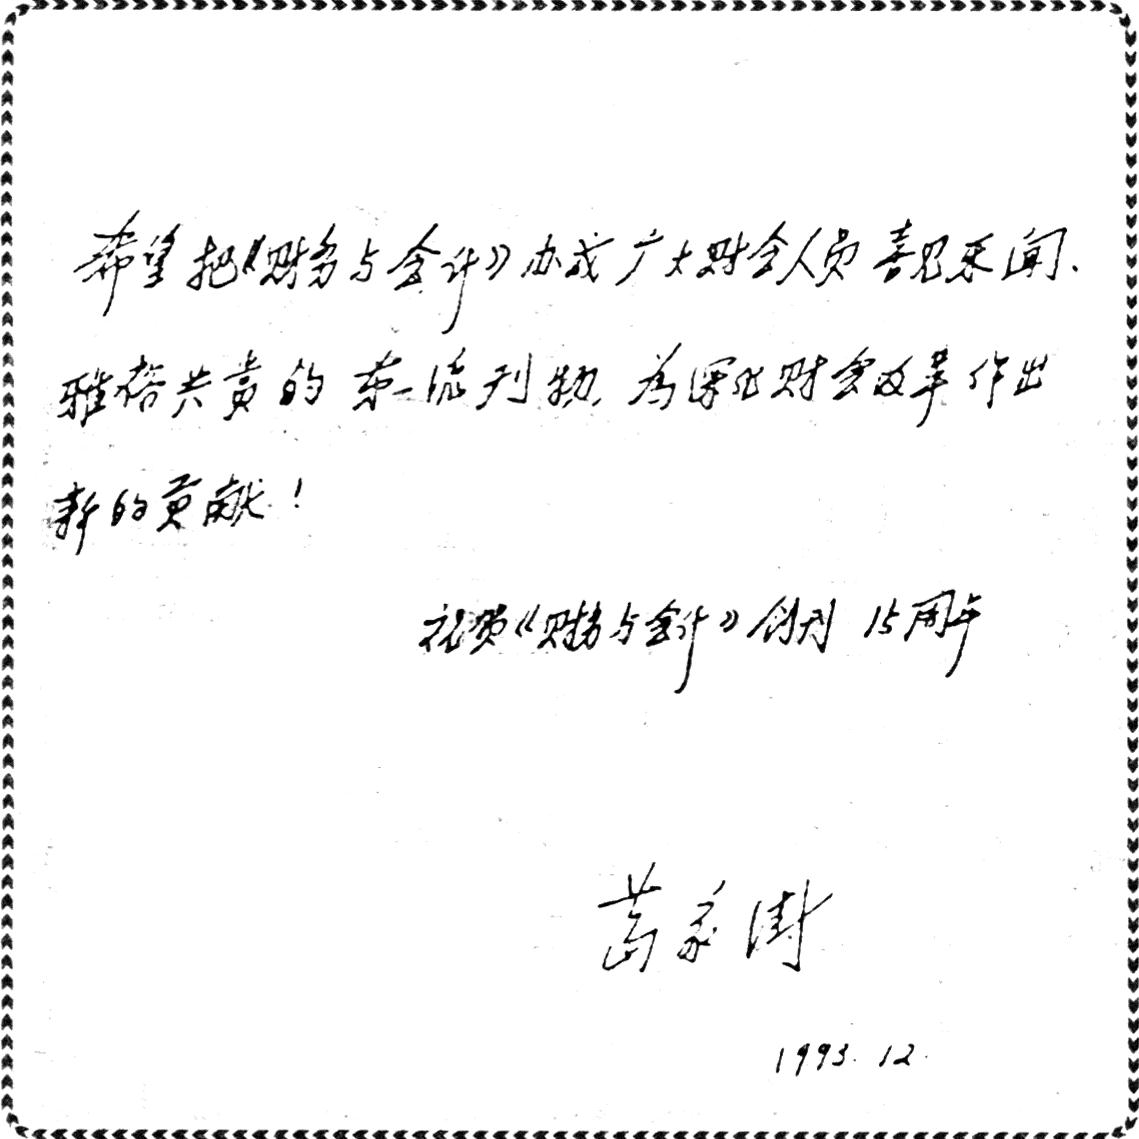 希望把《财务与会计》办成广大财会人员喜见乐闻、
雅俗共赏的第一流刊物，为深化财会改革作出
新的贡献！
祝贺《财务与会计》创刊15周年
葛家澍
1993.12.